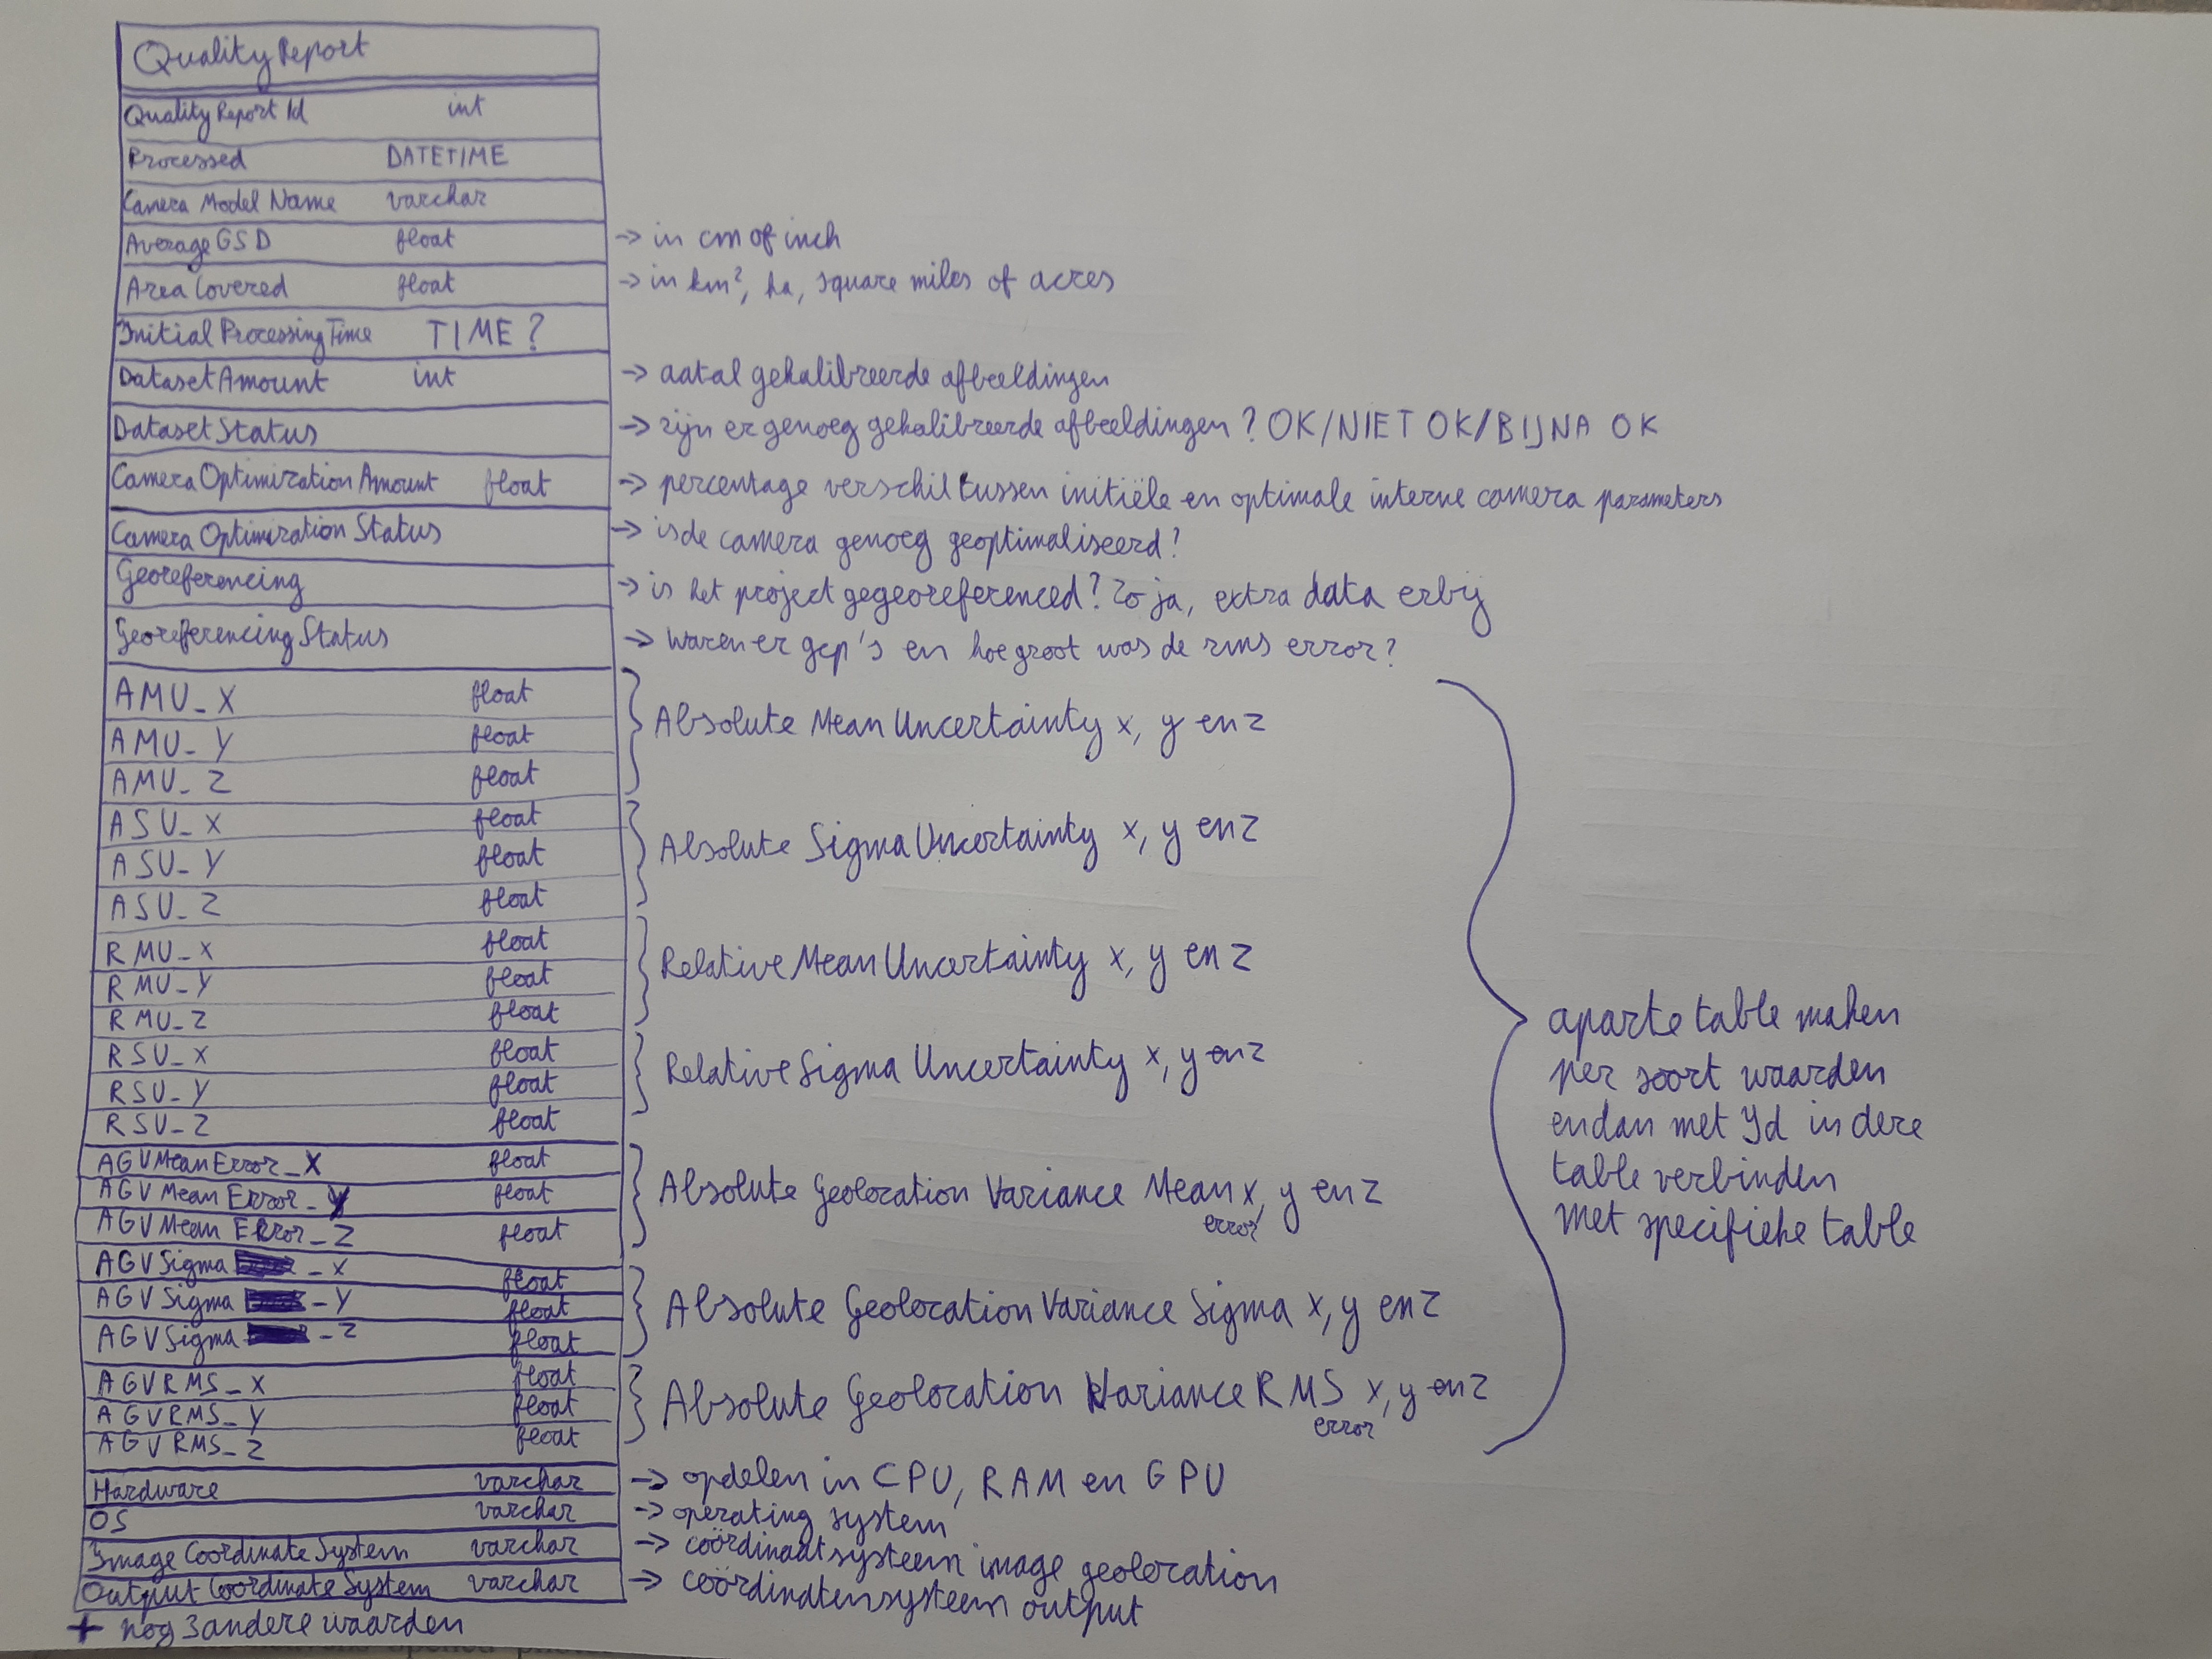 Quality Report
Quality Report Id int
Processed DATETIME
Camera Model Name varchar
Average GSD float → in cm of inch
Area Covered float → in km², ha, square miles of acres
Initial Processing Time TIME?
Dataset Amount int → aatal gekalibreerde afbeeldingen
Dataset Status → zijn er genoeg gekalibreerde afbeeldingen? OK/NIET OK/BIJNA OK
Camera Optimization Amount float → percentage verschil tussen initiële en optimale interne camera parameters
Camera Optimization Status → is de camera genoeg geoptimaliseerd?
Georeferencing → is het project gegeoreferenced? Zo ja, extra data erbij
Georeferencing Status → waren er gcp's en hoe groot was de rms error?
AMU_X float
AMU_Y float
AMU_Z float
Absolute Mean Uncertainty x, y en z
ASU_X float
ASU_Y float
ASU_Z float
Absolute Sigma Uncertainty x, y en z
RMU_X float
RMU_Y float
RMU_Z float
Relative Mean Uncertainty x, y en z
RSU_X float
RSU_Y float
RSU_Z float
Relative Sigma Uncertainty x, y en z
AGV Mean Error_X float
AGV Mean Error_Y float
AGV Mean Error_Z float
Absolute Geolocation Variance Mean x, y en z
error
AGV Sigma _X float
AGV Sigma _Y float
AGV Sigma _Z float
Absolute Geolocation Variance Sigma x, y en z
AGV RMS_X float
AGV RMS_Y float
AGV RMS_Z float
Absolute Geolocation Variance RMS x, y en z
error
aparte table maken
per soort waarden
en dan met Id in deze
table verbinden
met specifieke table
Hardware varchar → opdelen in CPU, RAM en GPU
OS varchar → operating system
Image Coördinate System varchar → coördinaatsysteem image geolocation
Output Coordinate System varchar → coördinatensysteem output
+ nog 3 andere waarden